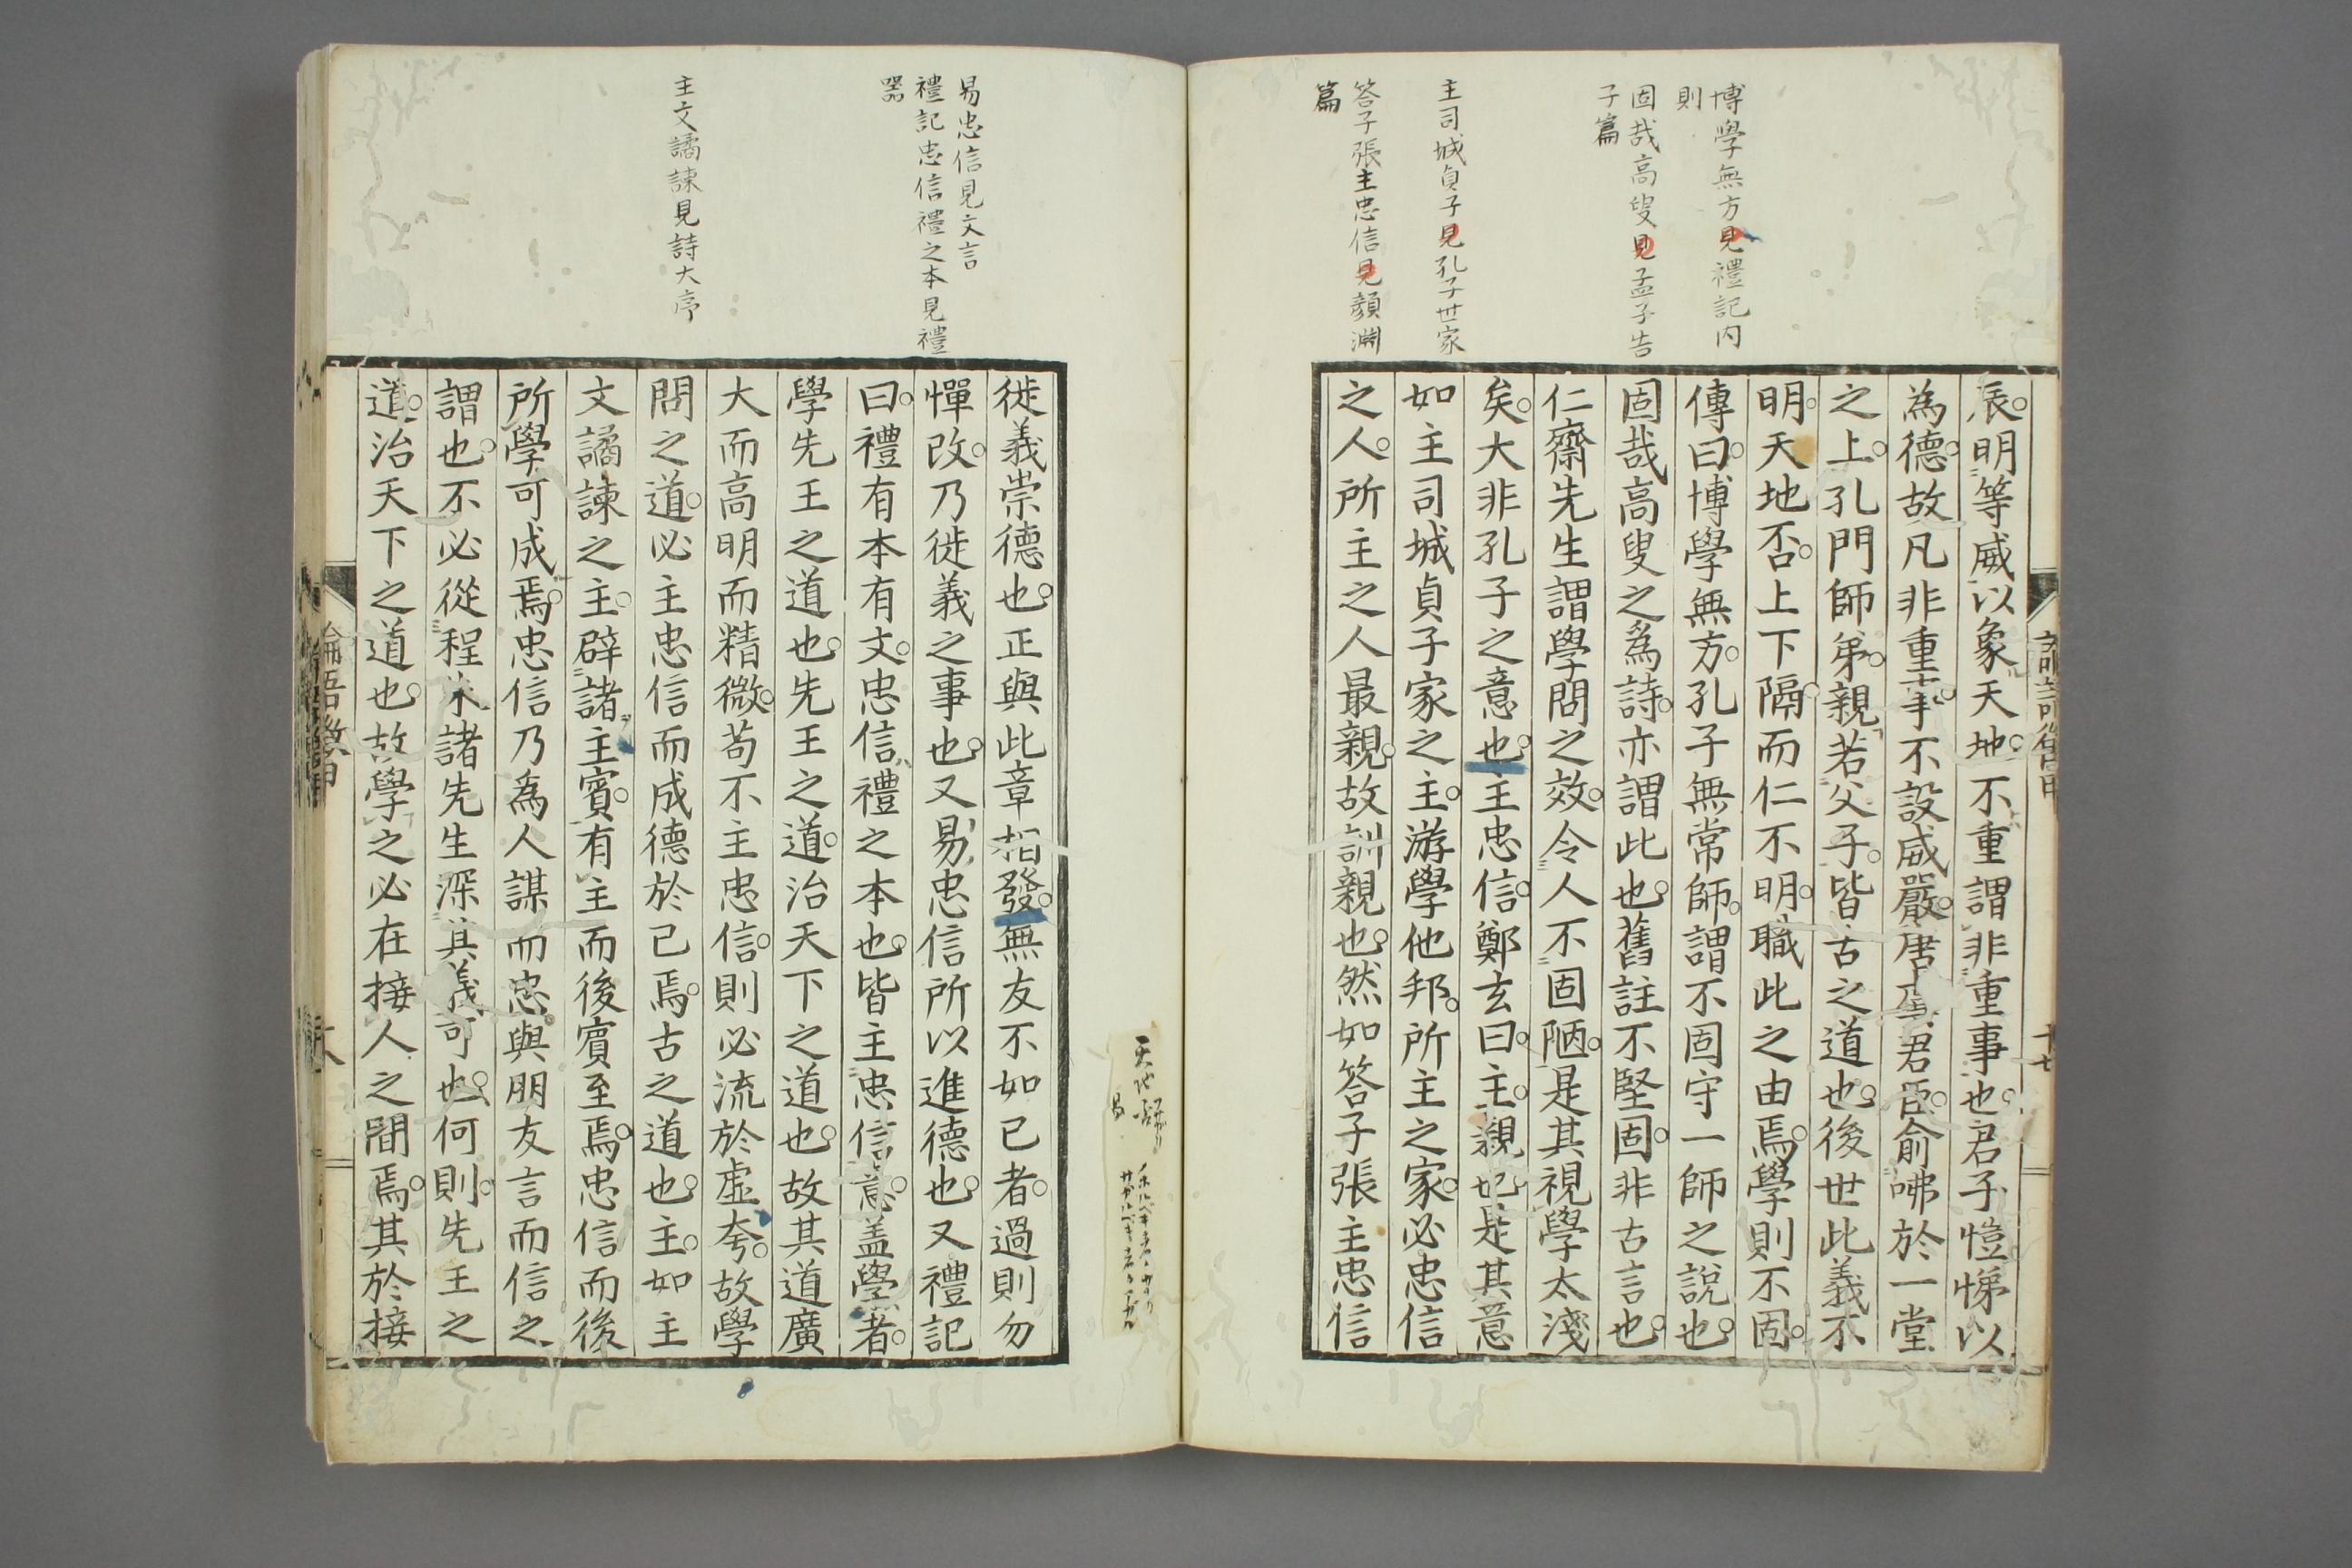 博學無方見禮記内
則
固哉高叟見孟子告
子篇
主司城貞子見孔子世家
答子張主忠信見顔淵
篇
辰明等威以象天地不重謂非重事也君子愷悌以
為德故凡非重事不設威嚴唐虞君臣俞咈於一堂
之上孔門師弟親若父子皆古之道也後世此義不
明天地否上下隔而仁不明職此之由焉學則不固
傳曰博學無方孔子無常師謂不固守一師之說也
固哉高叟之爲詩亦謂此也舊註不堅固非古言也
仁齋先生謂學問之效令人不固陋是其視學太淺
矣大非孔子之意也主忠信鄭玄曰主親也是其意
如主司城貞子家之主游學他邦所主之家必忠信
之人所主之人最親故訓親也然如答子張主忠信
十七
易忠信見文言
禮記忠信禮之本見禮
器
主文譎諫見詩大序
徙義崇德也正與此章相發無友不如已者過則勿
憚改乃徙義之事也又易忠信所以進德也又禮記
曰禮有本有文忠信禮之本也皆主忠信意盖學者
學先王之道也先王之道治天下之道也故其道廣
大而高明而精微苟不主忠信則必流於虛夸故學
問之道必主忠信而成德於已焉古之道也主如主
文譎諫之主辟諸主賓有主而後賓至焉忠信而後
所學可成焉忠信乃爲人謀而忠與朋友言而信之
謂也不必從程朱諸先生深其義可也何則先王之
道治天下之道也故學之必在接人之間焉其於接
論語徵甲